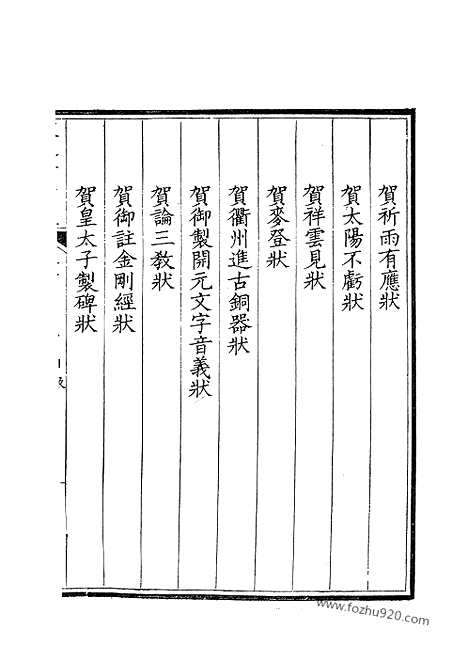 賀祈雨有應狀
賀太陽不虧狀
賀祥雲見狀
賀麥登狀
賀衢州進古銅器狀
賀御製開元文字音義狀
賀論三教狀
賀御註金剛經狀
賀皇太子製碑狀
www.fozhu920.com